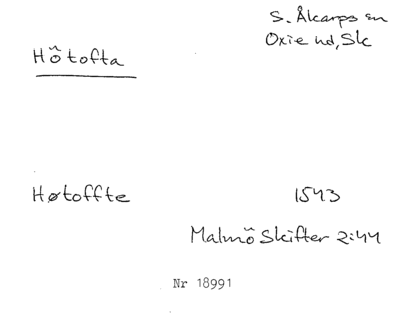 S. Åkarps sn
Oxie hd, Sk
Hötofta
Høtoffte 1543
Malmö Skifter 2:44
Nr 18991